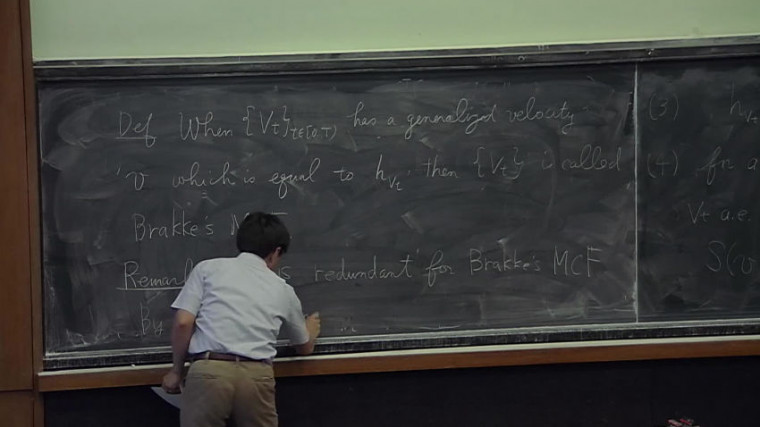 Def When {V_t}_{t∈[0,T)} has a generalized velocity
v which is equal to h_{V_t}, then {V_t} is called
Brakke's M F
Remar s redundant for Brakke's MCF
By
(3) h_{V_t}
(4) for a
V_t a.e.
S(v